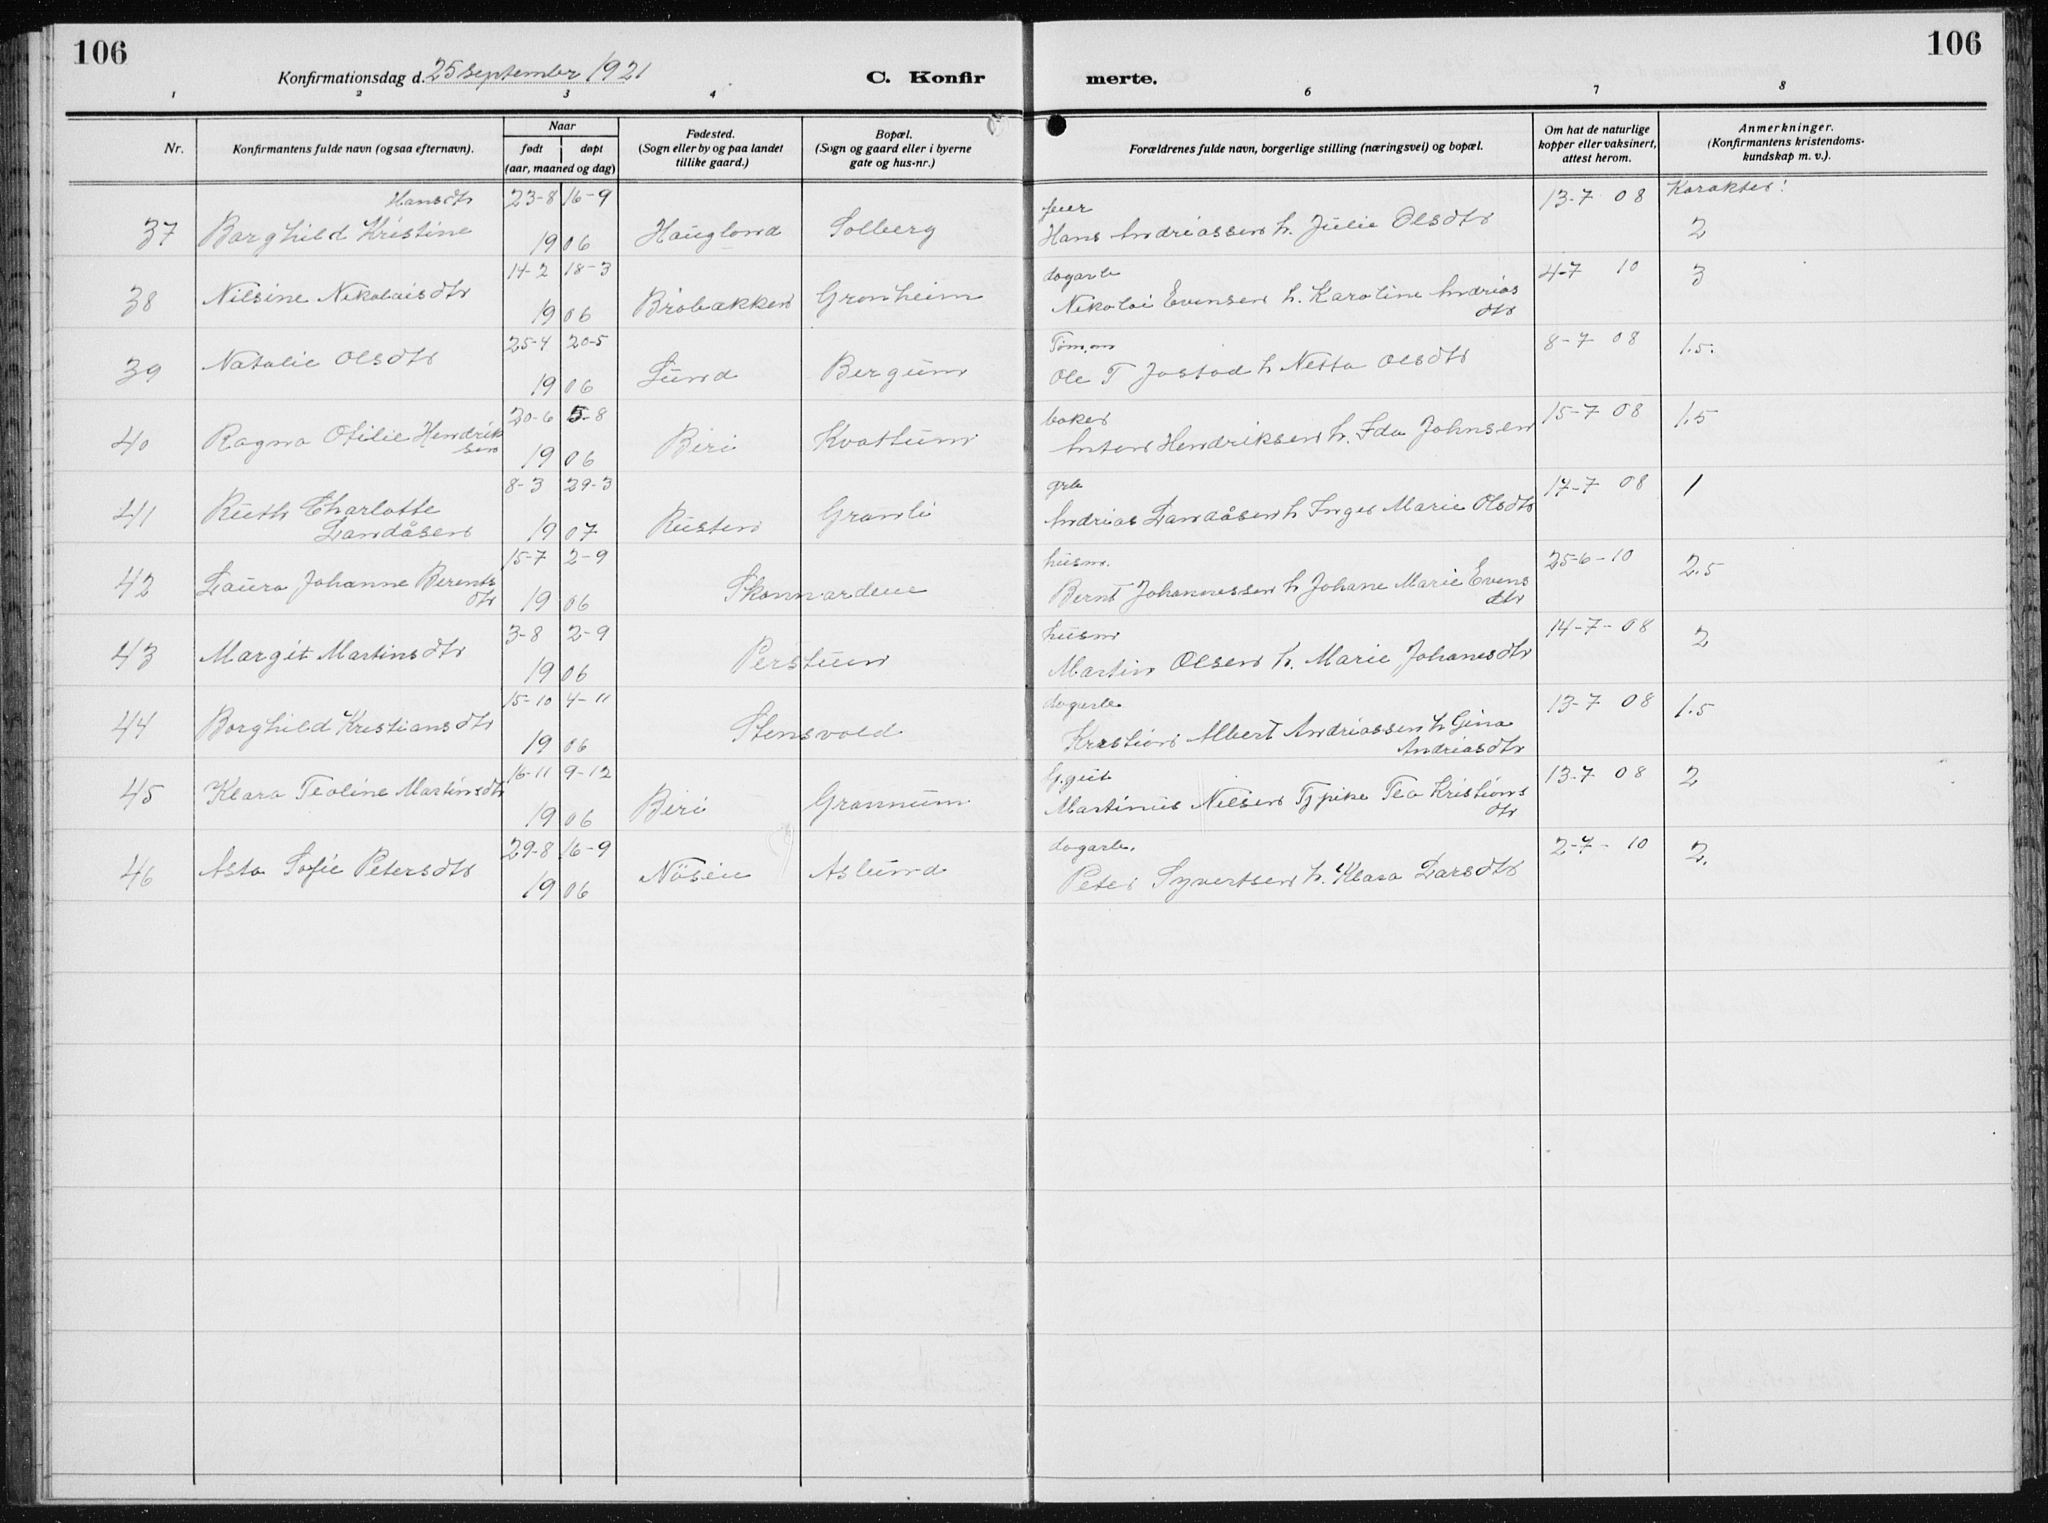 106
106
Konfirmationsdag d. 25 september 1921
C. Konfir
merte.
1 2 3 4 6 7 8
Nr.
Konfirmantens fulde navn (ogsaa efternavn).
Naar
født
døpt
(aar, maaned og dag)
Fødested.
(Sogn eller by og paa landet
tillike gaard.)
Bopæl.
(Sogn og gaard eller i byerne
gate og hus-nr.)
Forældrenes fulde navn, borgerlige stilling (næringsvei) og bopæl.
Om hat de naturlige
kopper eller vaksinert,
attest herom.
Anmerkninger.
(Konfirmantens kristendoms-
kundskap m. v.).
Hansdtr 23-8 16-9 feier 13-7 08 Karakter:
37 Borghild Kristine 1906 Hauglund Solberg Hans Andriassen h. Julie Olsdtr 2
14-2 18-3 dagarb 4-7 10
38 Nilsine Nikolaisdtr 1906 Brobakken Grønheim Nikolai Evensen h. Karoline Andrias 3
dtr
25-4 20-5 Tømm 8-7 08
39 Natalie Olsdtr 1906 Lund Bergum Ole T Jostad h Netta Olsdtr 1.5.
20-6 5-8 baker 15-7 08
40 Ragna Otilie Hendrik 1906 Biri Kvattum Anton Hendriksen h. Ida Johnsen 1.5
sen
8-3 29-3 grb 17-7 08
41 Ruth Charlotte 1907 Rusten Granli Andrias Landåsen h Inger Marie Olsdtr 1
Landåsen
15-7 2-9 husm. 25-6-10
42 Laura Johanne Berents 1906 Skonnordeie Bernt Johannessen h Johane Marie Evens 2.5
dtr
dtr
3-8 2-9 husm 14-7-08
43 Margit Martinsdtr 1906 Perstuen Martin Olsen h. Marie Johanesdtr 2
15-10 4-11 dagarb 13-7 08
44 Borghild Kristiansdtr 1906 Stensvold Kristian Albert Andriassen h Gina 1.5
Andriasdtr
16-11 9-12 G.gut 13-7 08
45 Klara Teoline Martinsdtr 1906 Biri Grannum Martinus Nilsen Tj pike Tea Kristians 2
dtr
29-8 16-9 dagarb. 2-7-10
46 Asta Sofie Petersdtr 1906 Nøseie Aslund Peter Syvertsen h. Klara Larsdtr 2.